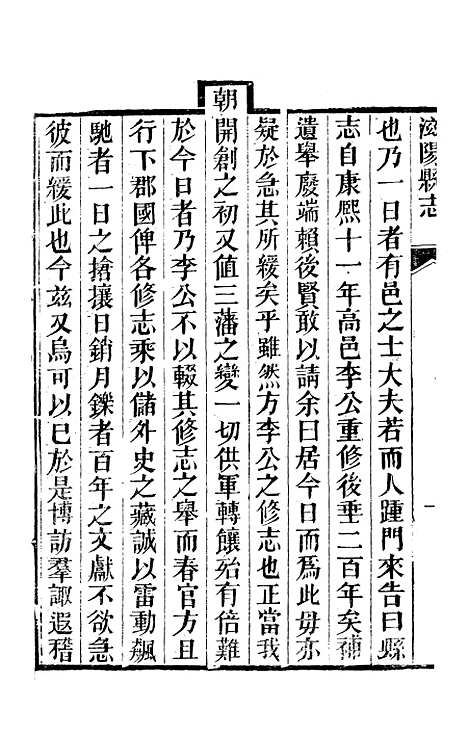 滋陽縣志
也乃一日者有邑之士大夫若而人踵門來告曰縣
志自康熙十一年高邑李公重修後垂二百年矣補
遺舉廢端賴後賢敢以請余曰居今日而爲此毋亦
疑於急其所緩矣乎雖然方李公之修志也正當我
朝開創之初又值三藩之變一切供軍轉饟殆有倍難
於今日者乃李公不以輟其修志之舉而春官方且
行下郡國俾各修志乘以儲外史之藏誠以雷動飆
馳者一日之搶攘日銷月鑠者百年之文獻不欲急
彼而緩此也今兹又烏可以已於是博訪羣諏遐稽